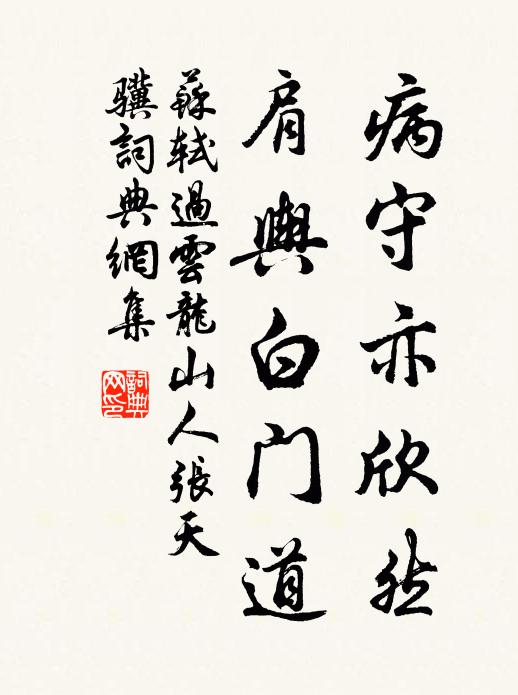 病守亦欣然
肩輿白门道
蘇軾過雲龍山人張天
驥詞典網集
詞典
网印